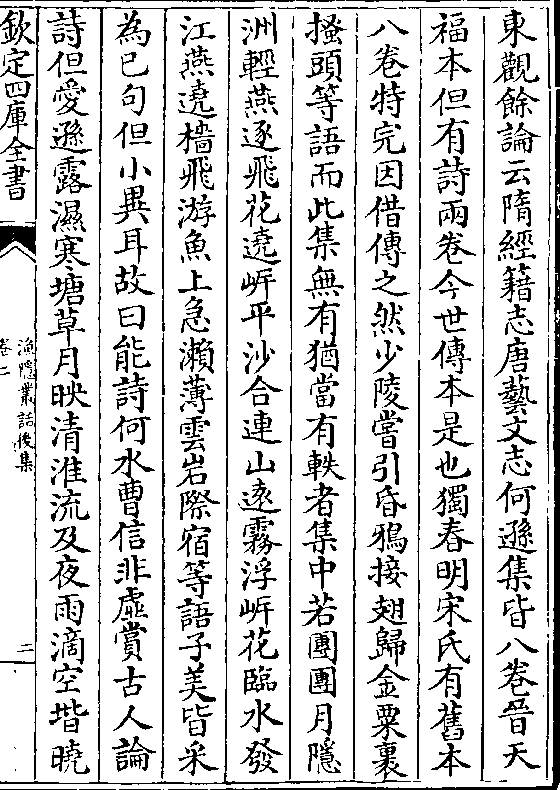 東觀餘論云隋經籍志唐藝文志何遜集皆八卷晉天
福本但有詩兩卷今世傳本是也獨春明宋氏有舊本
八卷特完因借傳之然少陵嘗引昏鴉接翅歸金粟裏
搔頭等語而此集無有猶當有軼者集中若團團月隱
洲輕燕逐飛花遶岸平沙合連山遠霧浮岸花臨水發
江燕遶檣飛游魚上急瀨薄雲岩際宿等語子美皆采
為已句但小異耳故曰能詩何水曹信非虛賞古人論
詩但愛遜露濕寒塘草月映清淮流及夜雨滴空堦曉
欽定四庫全書
漁隱叢話後集
卷二
二